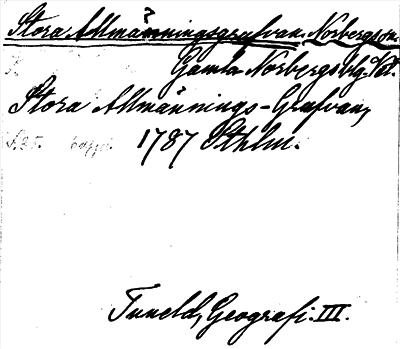 ?
Stora Allmänningsgrufvan. Norbergs sn.
Gamla Norbergs blg. Vstm.
Stora Allmännings-Grufvan,
S. 25. 6 uppl. 1787 Sthlm.
Tuneld, Geografi. III.